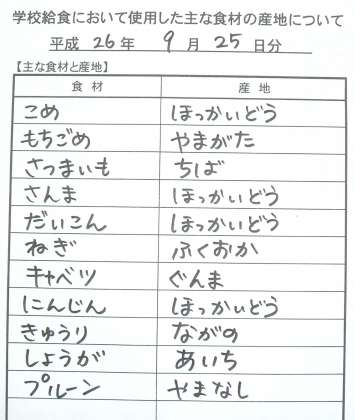 学校給食において使用した主な食材の産地について
平成 26 年 9 月 25 日分
【主な食材と産地】
食材 産地
こめ ほっかいどう
もちごめ やまがた
さつまいも ちば
さんま ほっかいどう
だいこん ほっかいどう
ねぎ ふくおか
キャベツ ぐんま
にんじん ほっかいどう
きゅうり ながの
しょうが あいち
プルーン やまなし